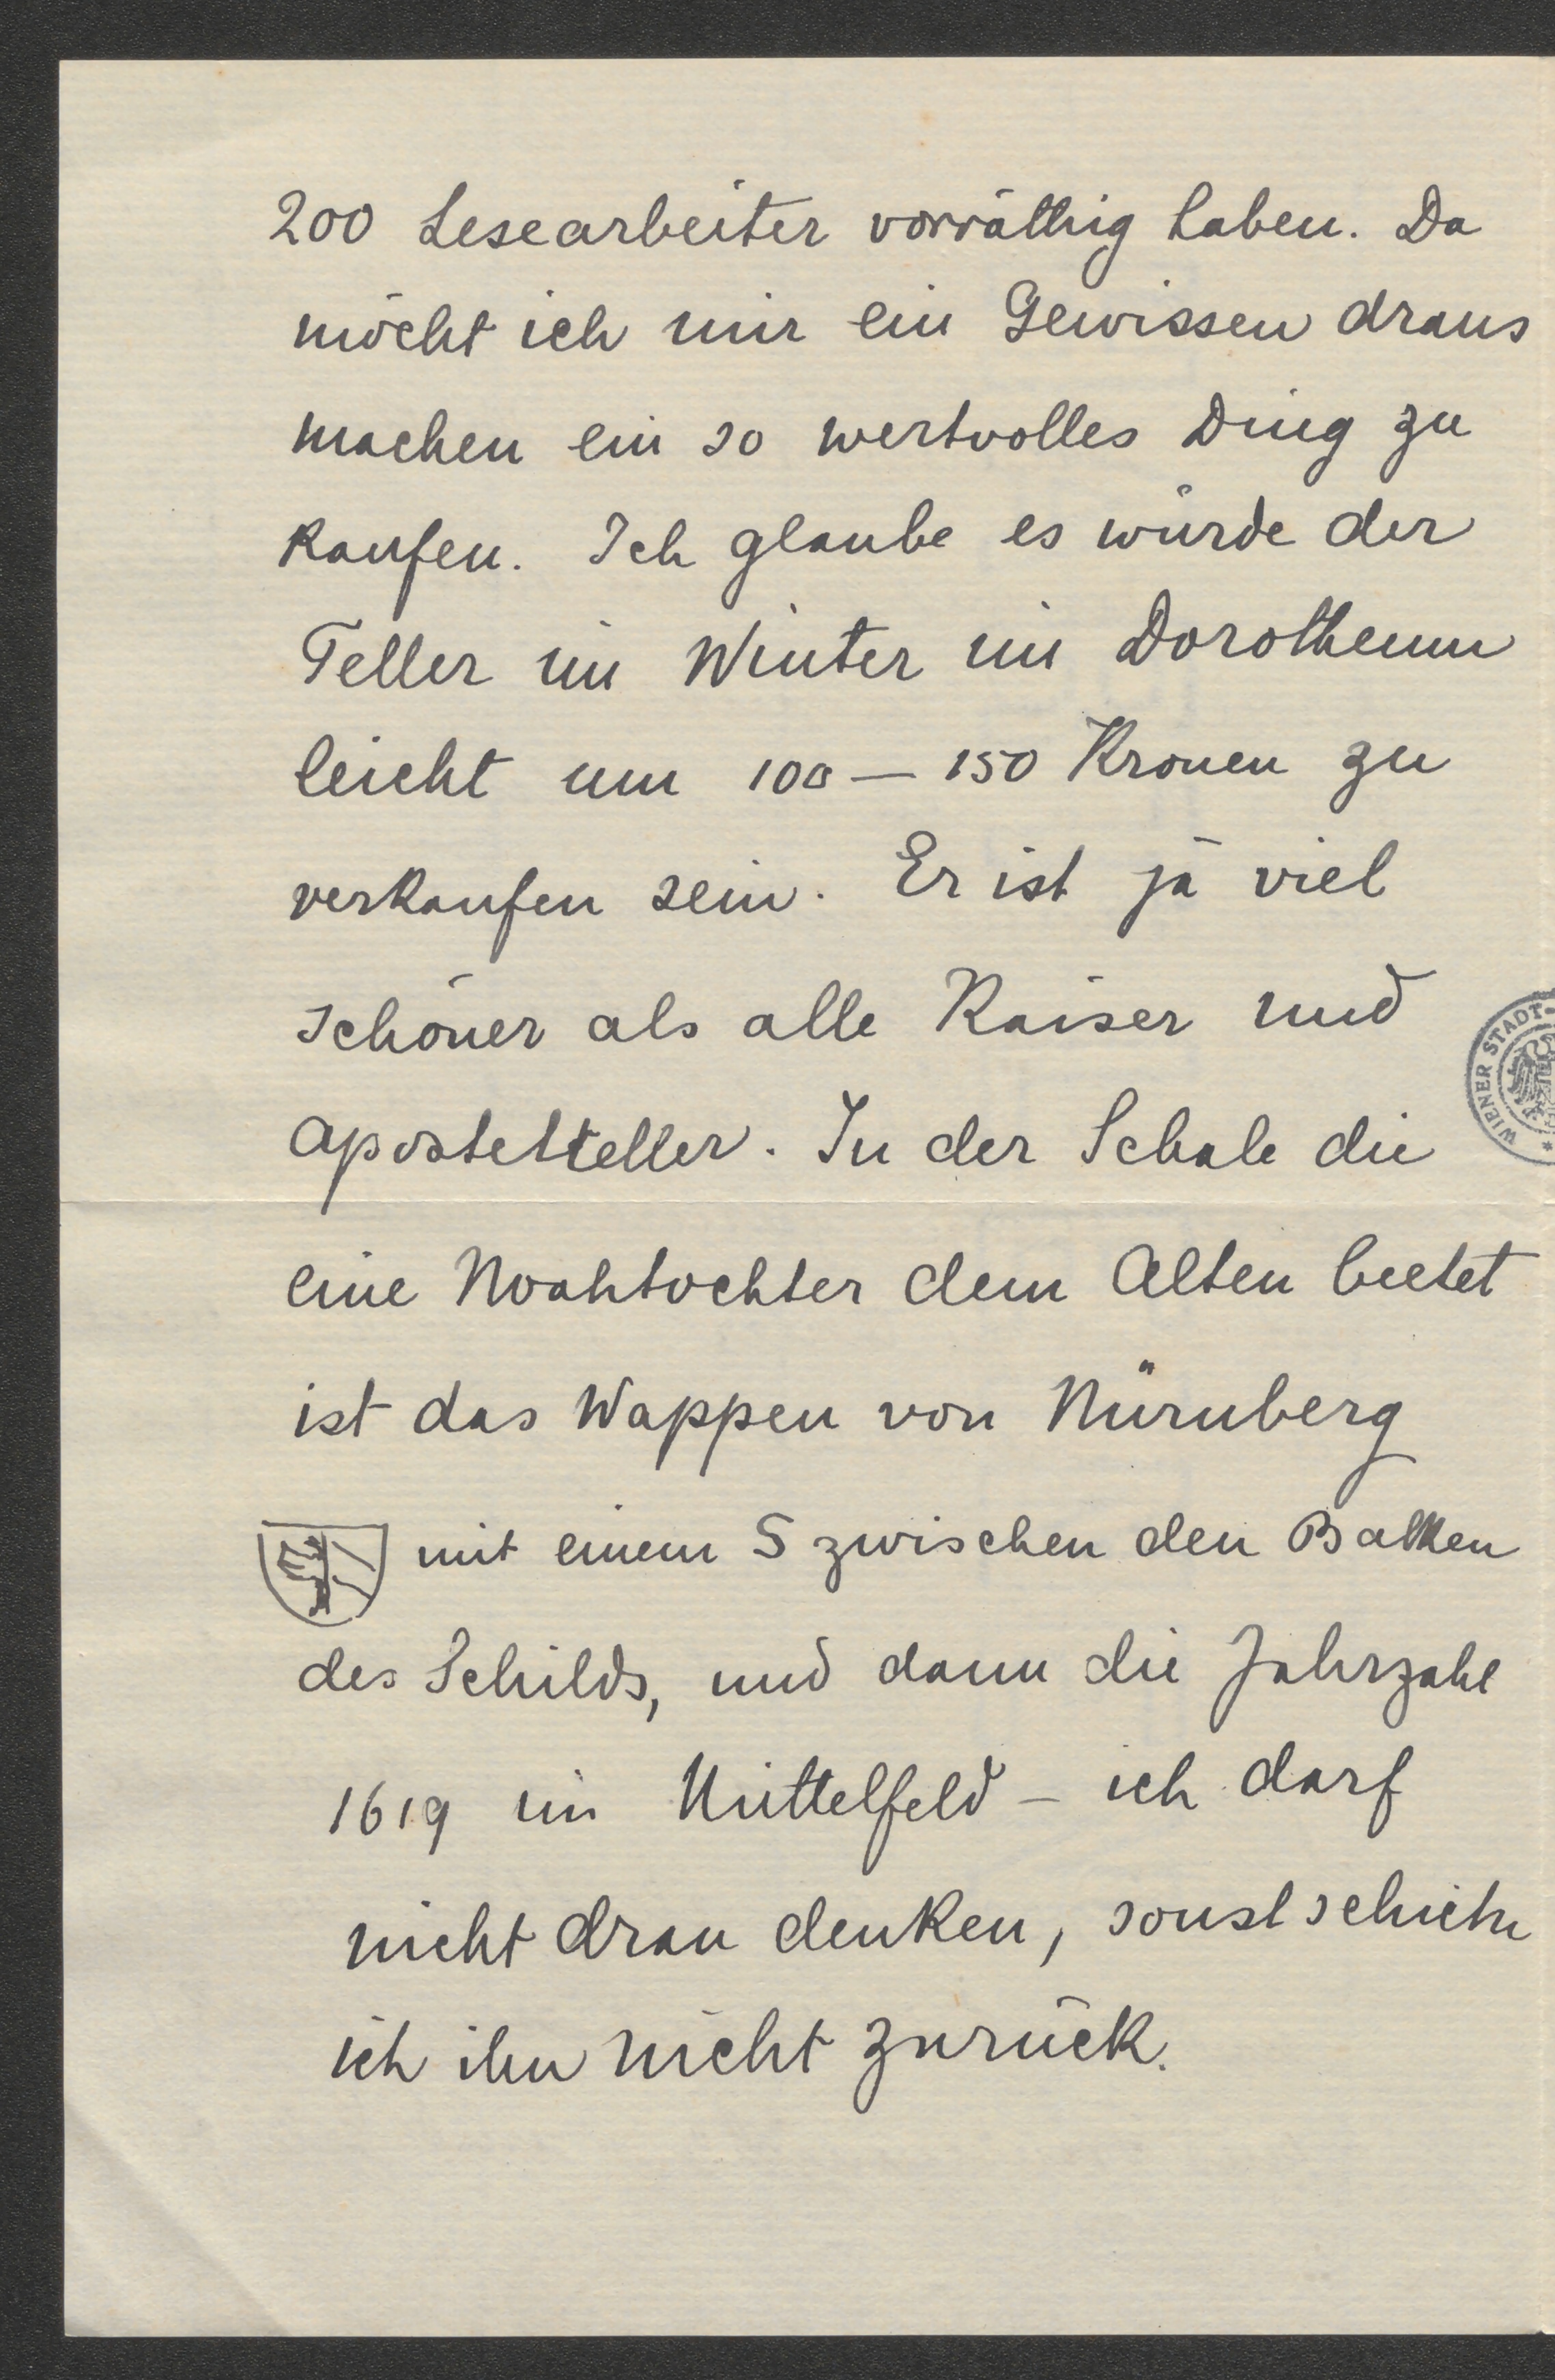 200 Lesearbeiter vorräthig haben. Da
möcht ich mir ein Gewissen draus
machen ein so wertvolles Ding zu
kaufen. Ich glaube es würde der
Teller im Winter im Dorotheum
leicht um 100 — 150 Kronen zu
verkaufen sein. Er ist ja viel
schöner als alle Kaiser und
Apostelteller. In der Schale die
WIENER STADT-
eine Noahtochter dem Alten bietet
ist das Wappen von Nürnberg
mit einem S zwischen den Balken
des Schilds, und dann die Jahrzahl
1619 im Mittelfeld – ich darf
nicht dran denken, sonst schicke
ich ihn nicht zurück.